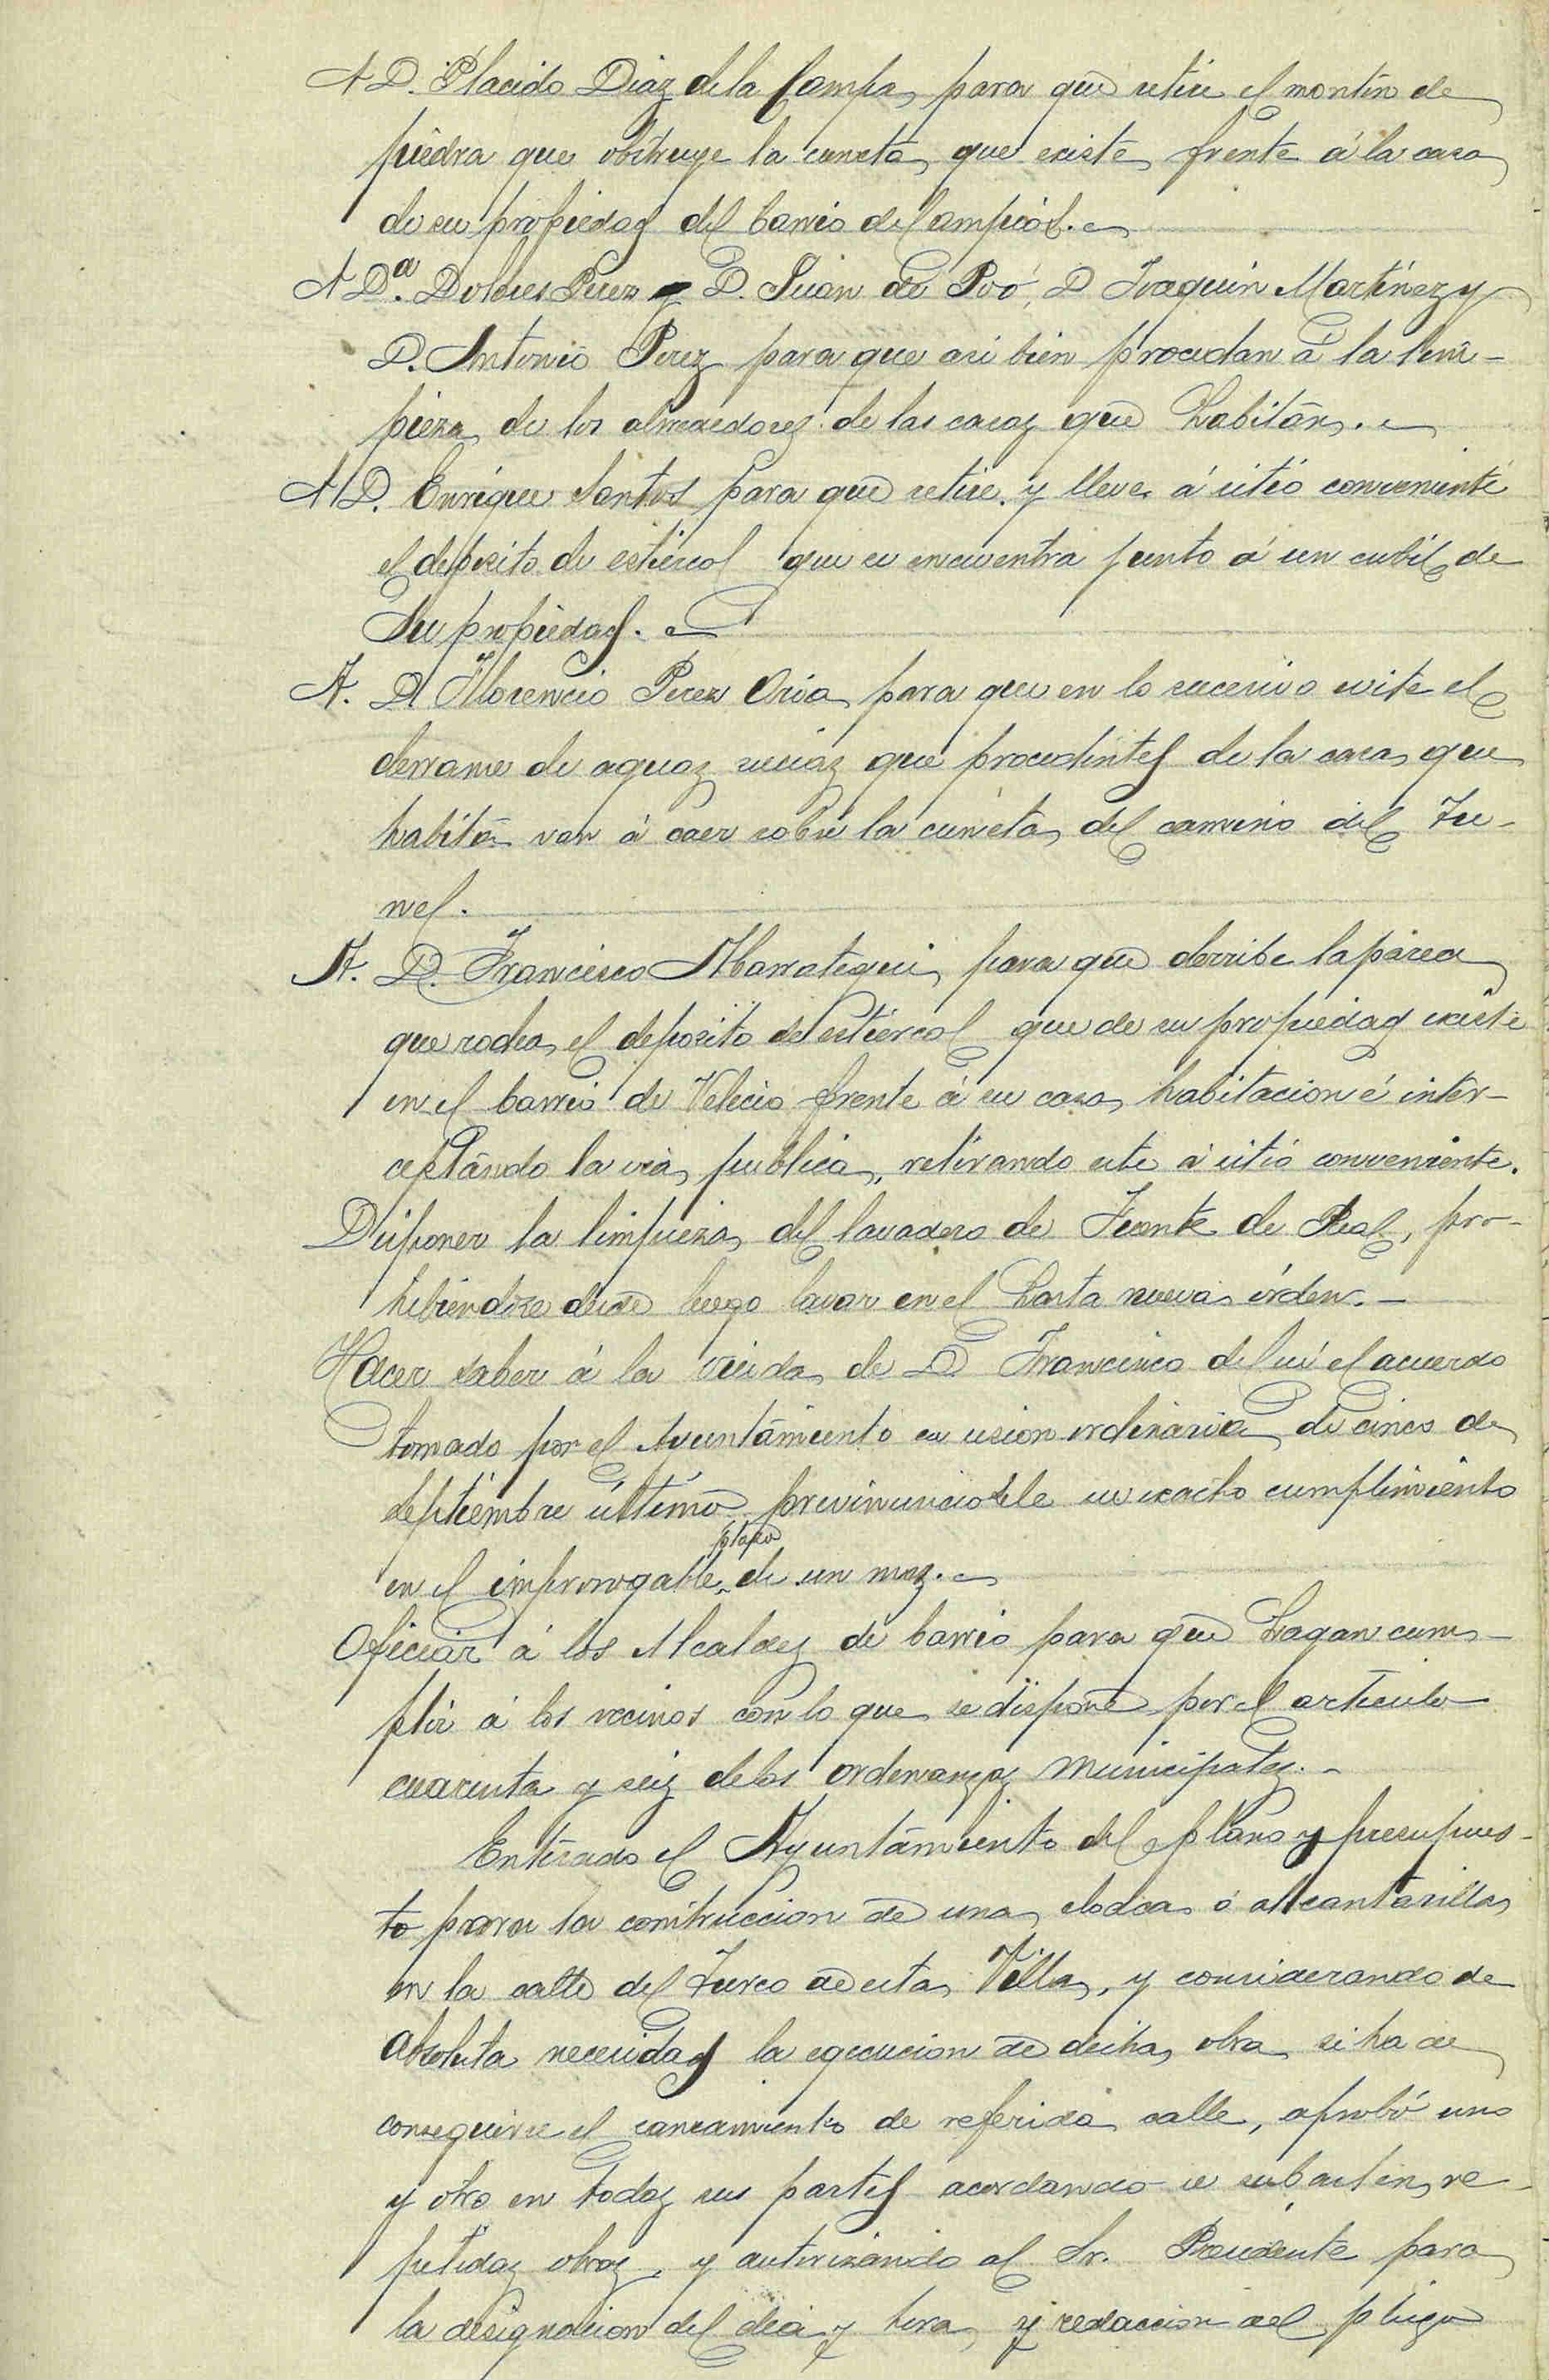 A D. Placido Diaz de la Campa, para que retire el montin de
piedra que obstruye la cuneta, que existe frente á la casa
de su propiedad del barrio del Campiós.
A D.ª Dolores Perez y D. Juan de Poó, D Joaquin Martínez y
D. Antonio Perez para que asi bien procedan á la lim-
pieza de los alrrededores de las casas que habitan.
A D. Enrique Santos para que retire y lleve á sitio conveniente
el deposito de estiercol que se encuentra junto á un cubil de
su propiedad.
A. D Florencio Perez Oria para que en lo sucesivo evite el
derrame de aguas sucias que procedentes de la casa que
habita van á caer sobre la cuneta del camino del Tu-
nel.
A. D. Francisco Abarrategui, para que derribe la pared
que rodea el deposito de estiércol que de su propiedad existe
en el barrio de Velecio frente á su casa habitacion é inter-
ceptando la via publica, retirando este á sitio conveniente.
Disponer la limpieza del lavadero de Fuente de Real, pro-
hibiendose desde luego lavar en el hasta nueva órden.
Hacer saber á la viuda de D Francisco el acuerdo
tomado por el Ayuntamiento en sesion ordinaria de cinco de
septiembre último previniendole su exacto cumplimiento
en el improrrogable plazo de un mes.
Oficiar á los Alcaldes de barrio para que hagan cum-
plir á los vecinos con lo que se dispone por el artículo
cuarenta y seis de las ordenanzas municipales.
Enterado el Ayuntamiento del plano y presupues-
to para la construccion de una cloaca ó alcantarilla
en la calle del Turco de esta Villa, y considerando de
absoluta necesidad la egecucion de dicha obra si ha de
conseguirse el saneamiento de referida calle, aprobó uno
y otro en todas sus partes acordando se subasten re-
petidas obras, y autorizando al Sr. Presidente para
la designacion del dia y hora, y redaccion del pliego